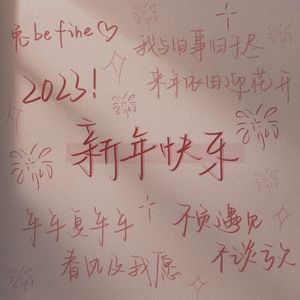 兔 be fine♡
2023!
我与旧事归于尽
来年依旧迎花开
新年快乐
年年复年年
春风及我愿
不负遇见
不谈亏欠